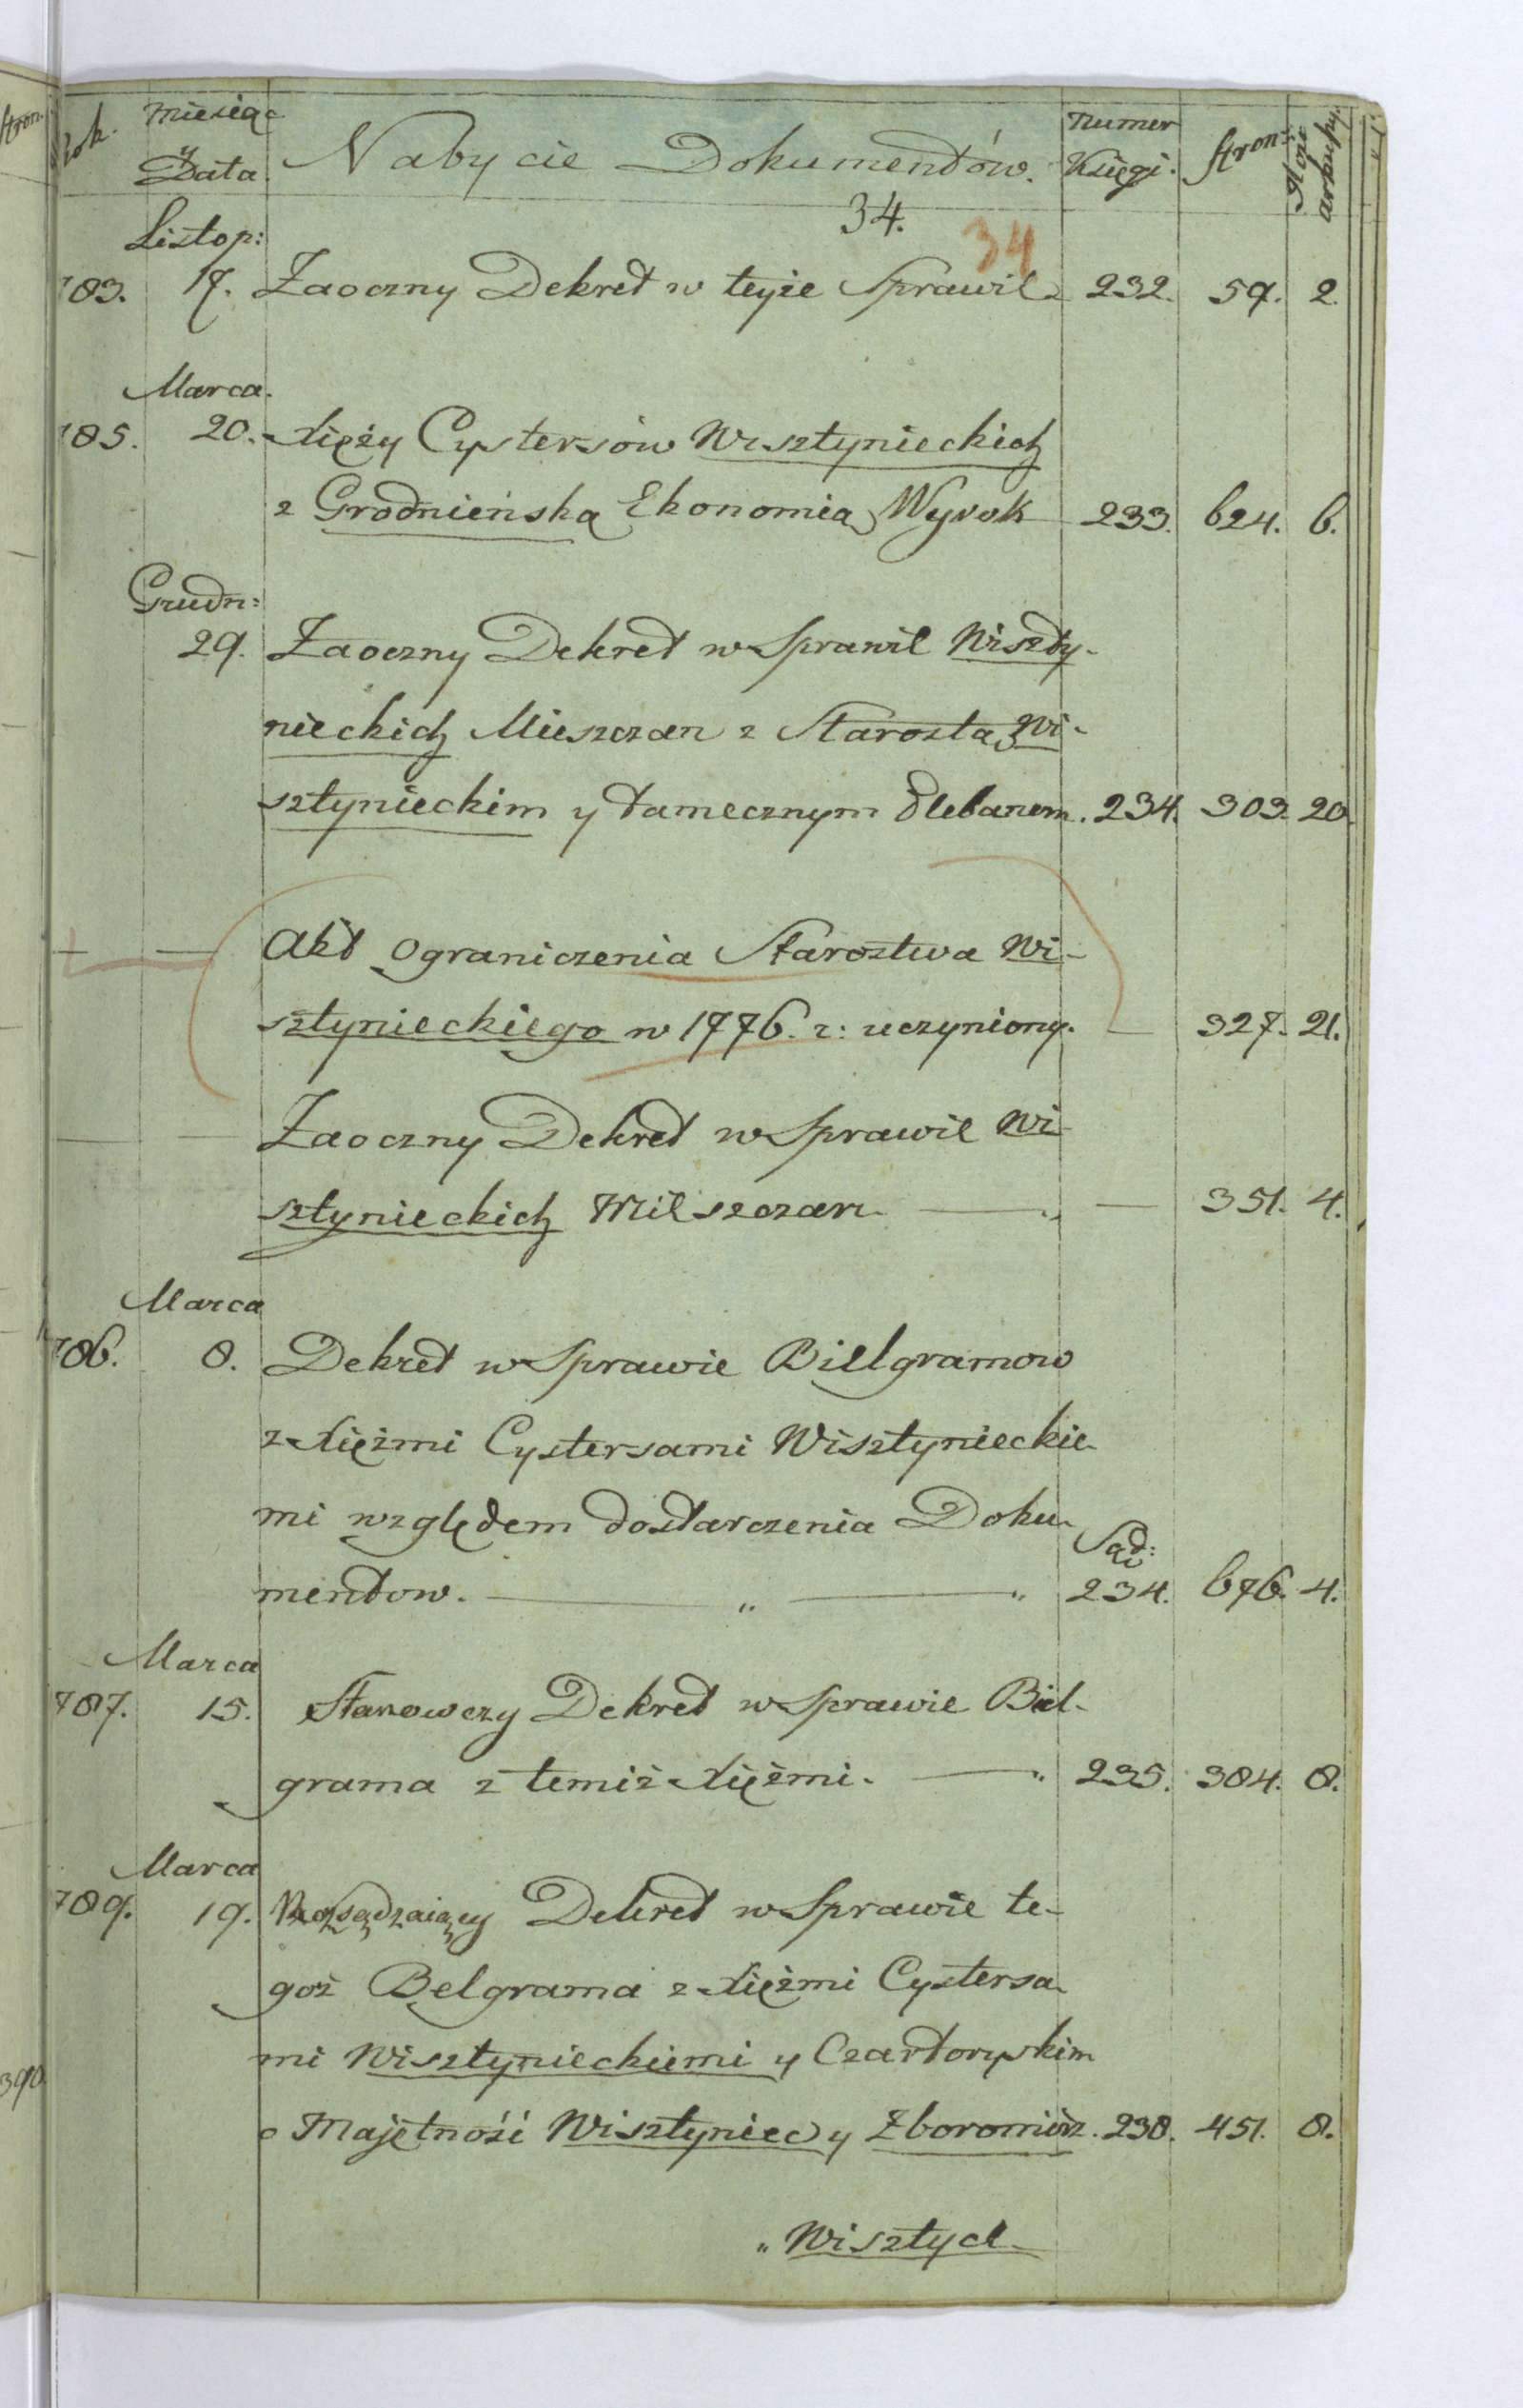 stron.
Rok. Miesiąc y Data. Nabycie Dokumentów. Numer Księgi. Stron: Ilość arkuszy.
34. 34
Listop:
783. 17. Zaoczny Dekret w teyże Sprawie 232. 57. 2
Marca.
785. 20. Xięży Cystersów Wisztynieckich
z Grodnieńską Ekonomią Wyrok 233. 624. 6.
Grudn:
29. Zaoczny Dekret w Sprawie Wiszty-
nieckich Mieszczan z Starostą Wi-
sztynieckim y tamecznym Plebanem. 234. 303. 20.
Akt Ograniczenia Starostwa Wi-
sztynieckiego w 1776. r: uczyniony. — 327. 21.
Zaoczny Dekret w Sprawie Wi-
sztynieckich Mieszczan — „ — 351. 4.
Marca
786. 8. Dekret w Sprawie Bielgramow
z Xiężmi Cystersami Wisztynieckie-
mi względem dostarczenia Doku-
Sąd:
mentow. — „ — „ 234. 676. 4.
Marca
787. 15. Stanowczy Dekret w Sprawie Biel-
grama z temiż Xiężmi. — „ 235. 384. 8.
Marca
789. 19. Rozsądzaiący Dekret w Sprawie te-
goż Belgrama z Xiężmi Cystersa-
mi Wisztynieckiemi y Czartoryskim
o Majętność Wisztyniec y 238. 451. 8.
„ Wisztyce
390